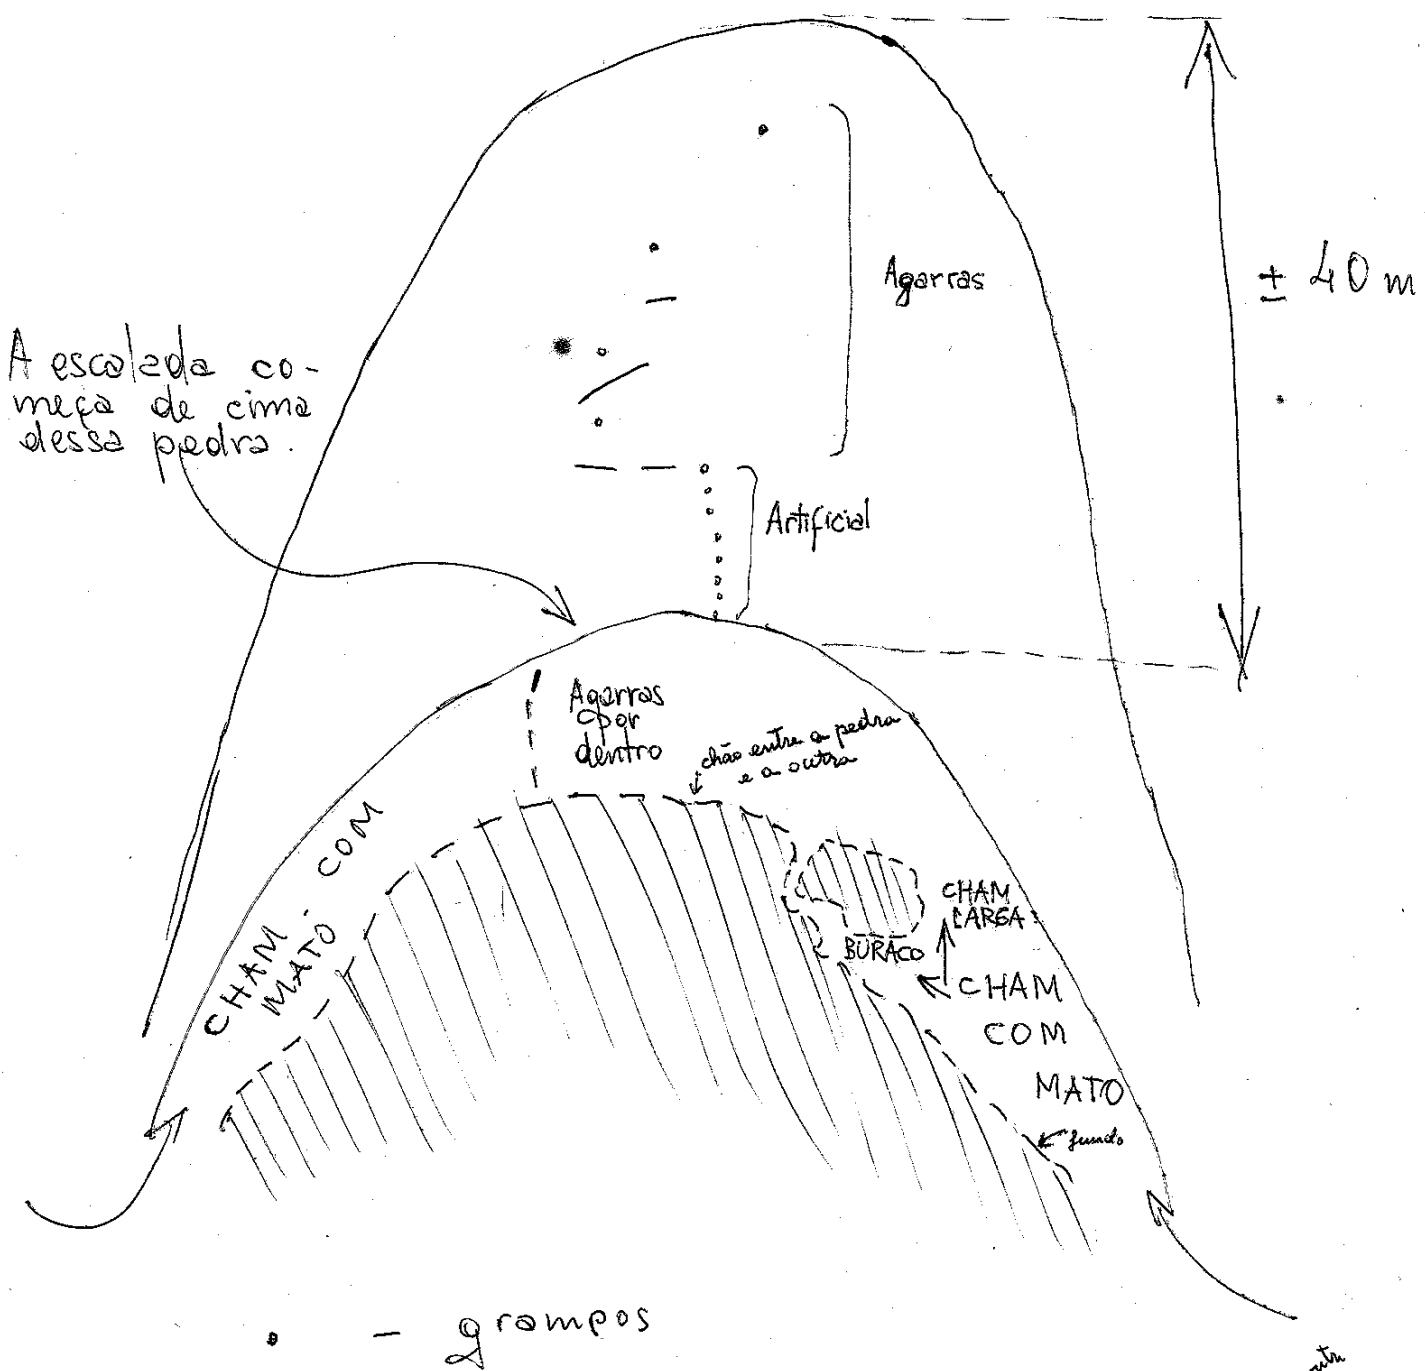 ± 40 m
Agarras
A escalada co-
meça de cima
dessa pedra.
Artificial
Agarras
por
dentro
chão entre a pedra
e a outra
CHAM. COM
MATO
CHAM
LARGA
BURACO
CHAM
COM
MATO
fundo
- grampos